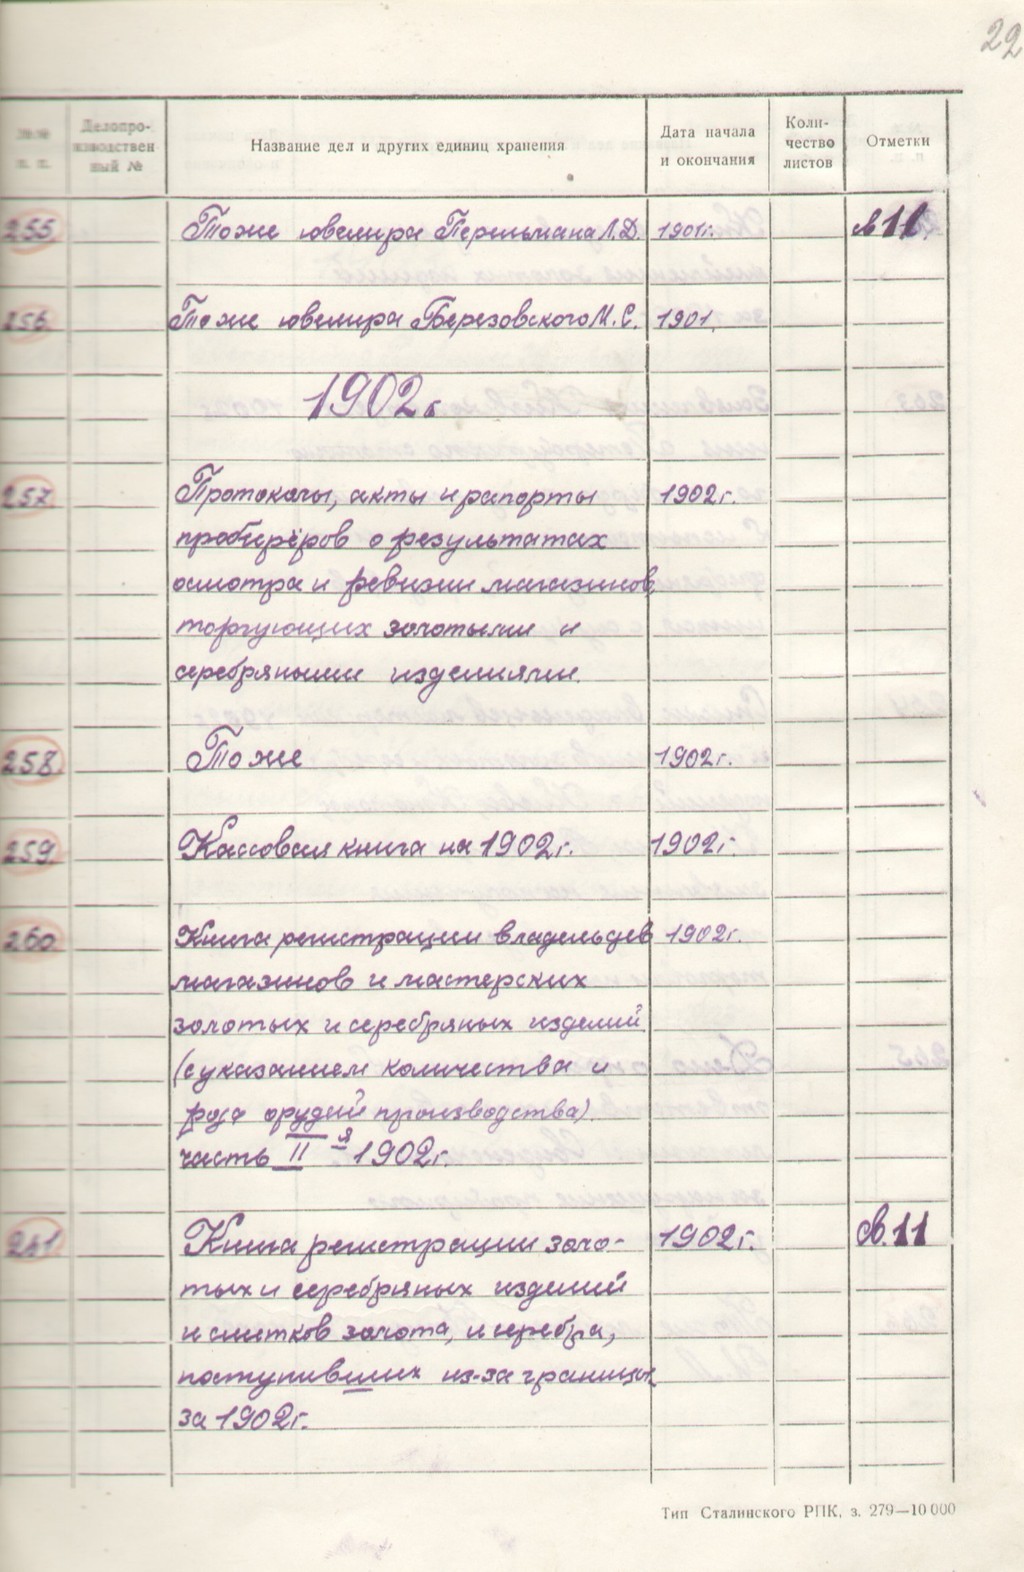 22
№№ п. п.
Делопро-
изводствен
ный №
Название дел и других единиц хранения
Дата начала
и окончания
Коли-
чество
листов
Отметки
255 Тоже ювелира Перельмана Л.Д. 1901г. 11
256 Тоже ювелира Березовского М.С. 1901
1902г
257 Протоколы, акты и рапорты 1902г.
пробирёров о результатах
осмотра и ревизии магазинов,
торгующих золотыми и
серебряными изделиями.
258. Тоже 1902г.
259 Кассовая книга на 1902г. 1902г.
260 Книга регистрации владельцев 1902г.
магазинов и мастерских
золотых и серебряных изделий
(с указанием количества и
рода орудий производства).
часть II я 1902г.
261 Книга регистрации золо- 1902г. св. 11
тых и серебряных изделий
и слитков золота, и серебра,
поступивших из-за границы
за 1902г.
Тип Сталинского РПК, з. 279—10 000